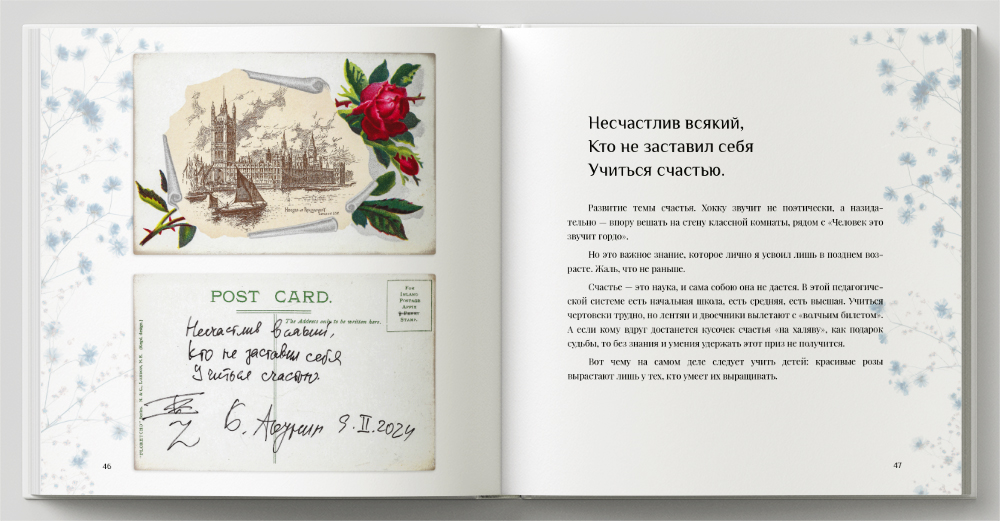 Houses of Parliament
POST CARD.
The Address only to be written here.
FOR
INLAND
POSTAGE
AFFIX
STAMP.
Несчастлив всякий,
Кто не заставил себя
Учиться счастью.
Б. Акунин 9.II.2024
46
Несчастлив всякий,
Кто не заставил себя
Учиться счастью.
Развитие темы счастья. Хокку звучит не поэтически, а назида-
тельно — впору вешать на стену классной комнаты, рядом с «Человек это
звучит гордо».
Но это важное знание, которое лично я усвоил лишь в позднем воз-
расте. Жаль, что не раньше.
Счастье — это наука, и сама собою она не дастся. В этой педагогиче-
ской системе есть начальная школа, есть средняя, есть высшая. Учиться
чертовски трудно, но лентяи и двоечники вылетают с «волчьим билетом».
А если кому вдруг достанется кусочек счастья «на халяву», как подарок
судьбы, то без знания и умения удержать этот приз не получится.
Вот чему на самом деле следует учить детей: красивые розы
вырастают лишь у тех, кто умеет их выращивать.
47